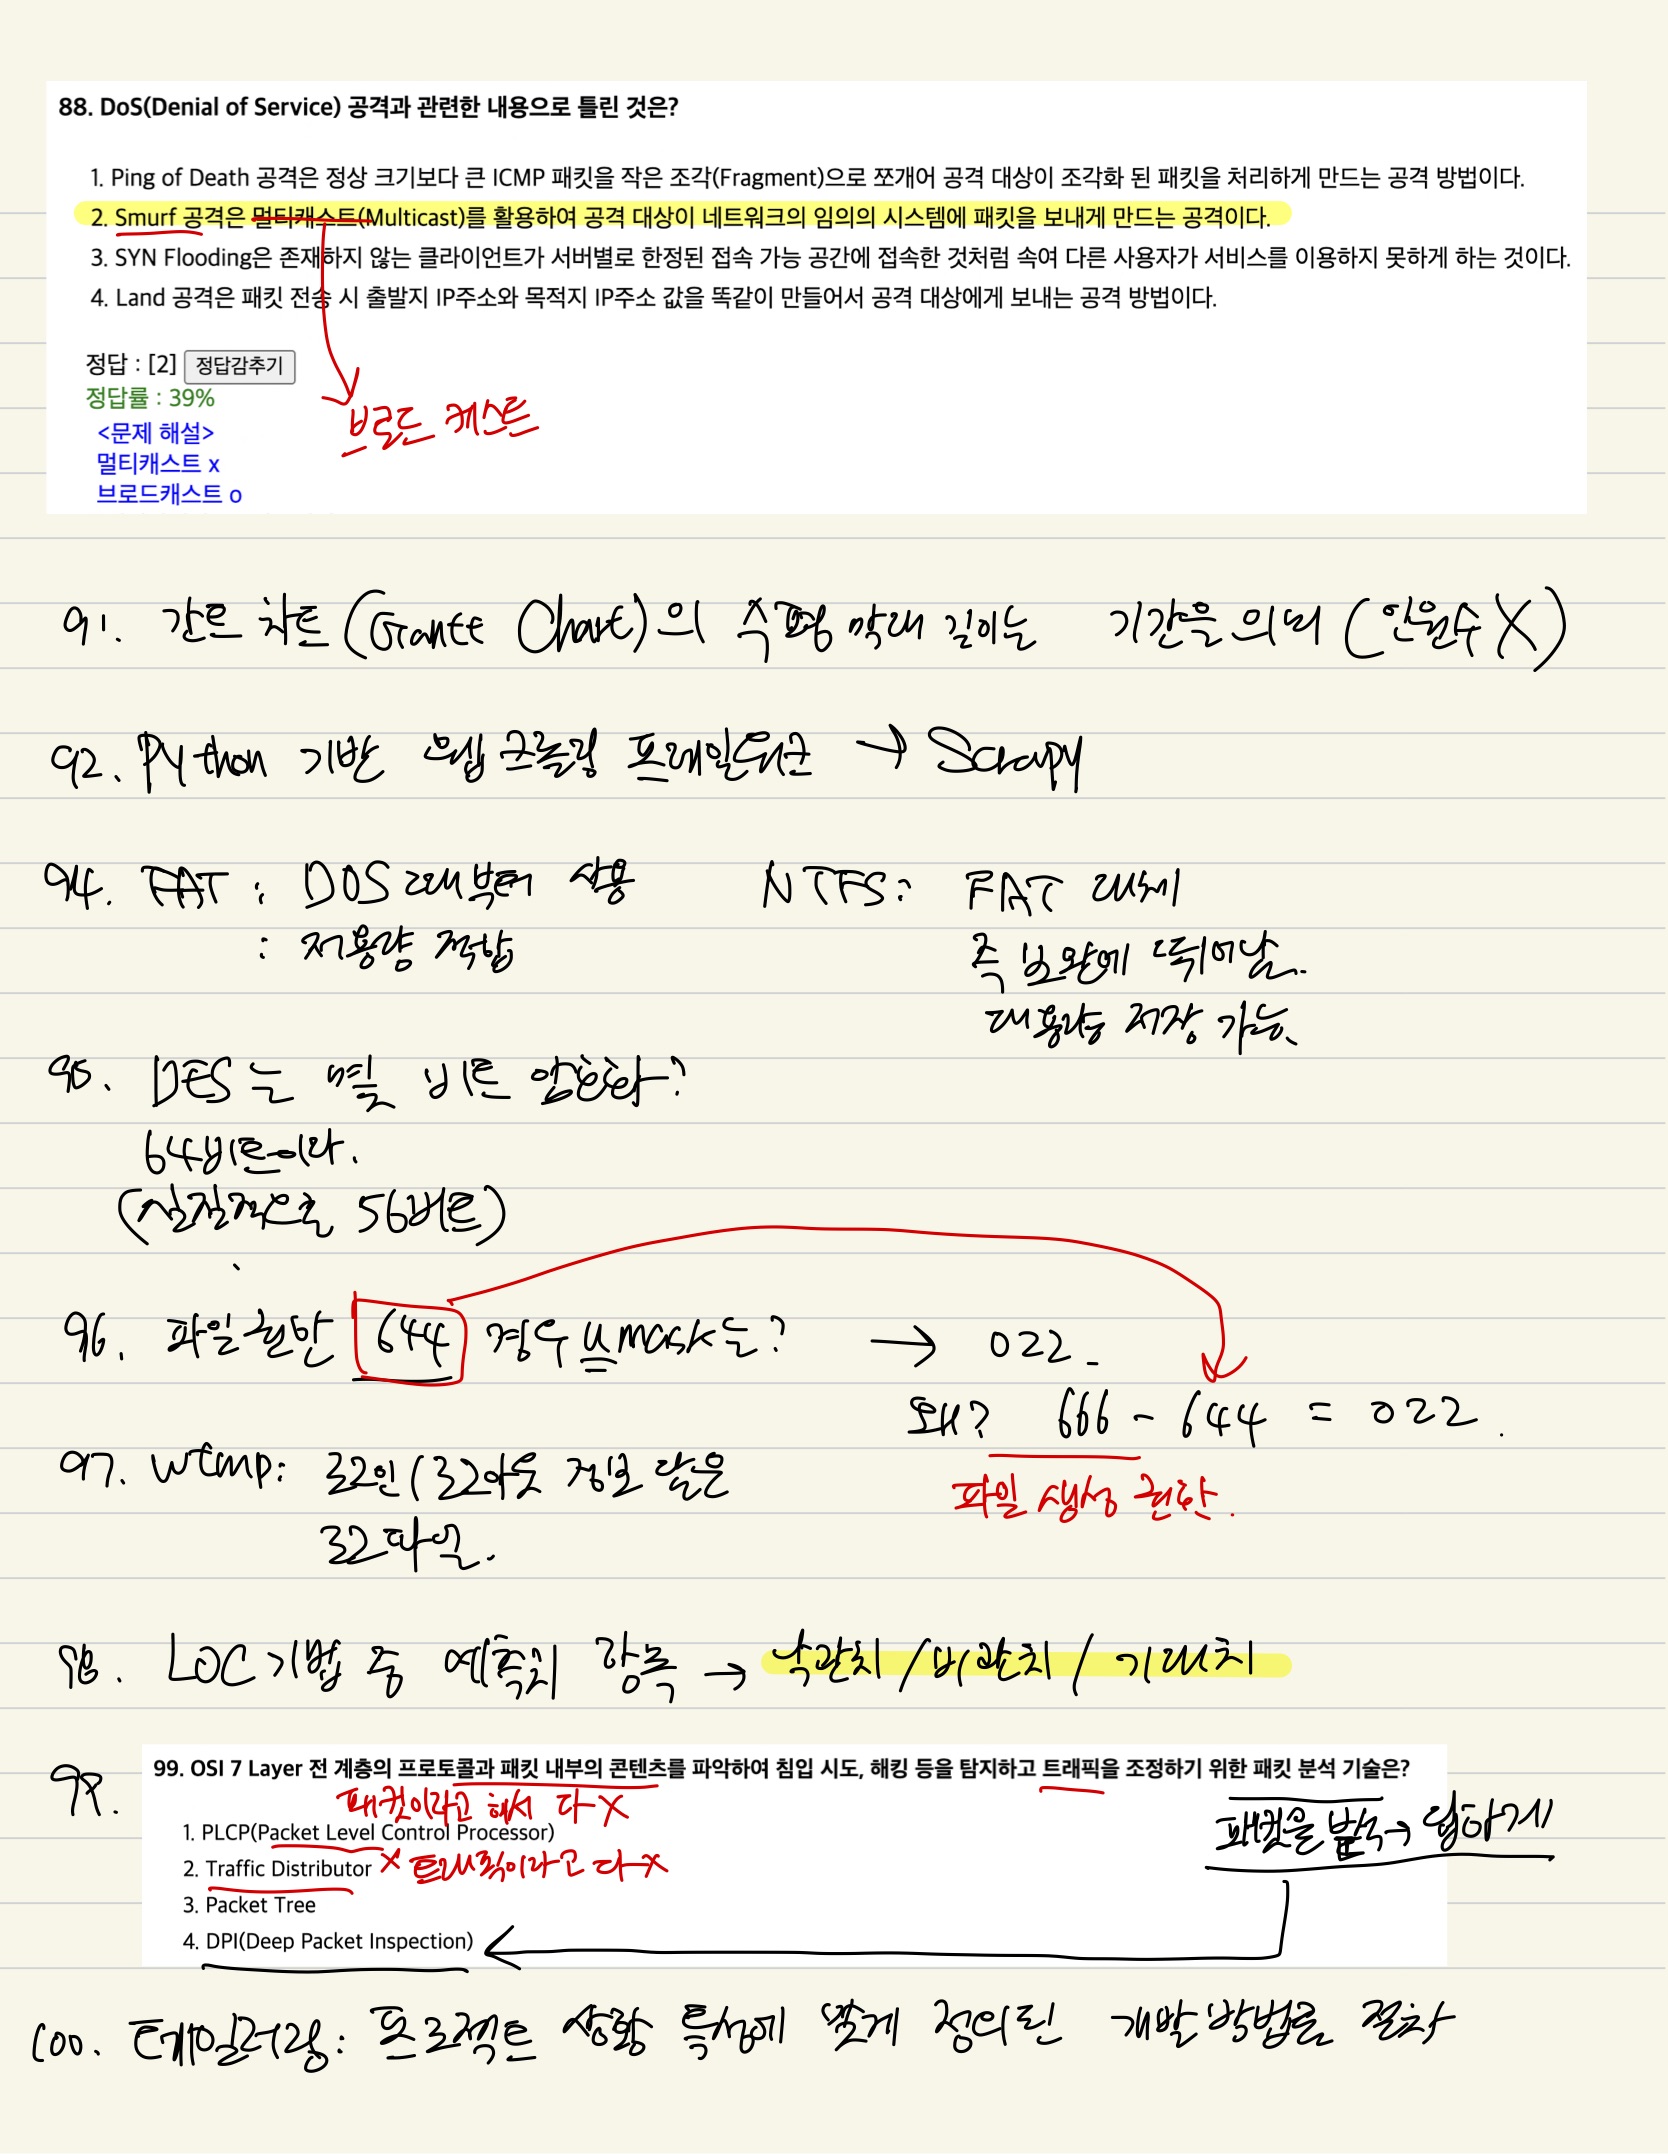 88. DoS(Denial of Service) 공격과 관련한 내용으로 틀린 것은?
1. Ping of Death 공격은 정상 크기보다 큰 ICMP 패킷을 작은 조각(Fragment)으로 쪼개어 공격 대상이 조각화 된 패킷을 처리하게 만드는 공격 방법이다.
2. Smurf 공격은 멀티캐스트(Multicast)를 활용하여 공격 대상이 네트워크의 임의의 시스템에 패킷을 보내게 만드는 공격이다.
3. SYN Flooding은 존재하지 않는 클라이언트가 서버별로 한정된 접속 가능 공간에 접속한 것처럼 속여 다른 사용자가 서비스를 이용하지 못하게 하는 것이다.
4. Land 공격은 패킷 전송 시 출발지 IP주소와 목적지 IP주소 값을 똑같이 만들어서 공격 대상에게 보내는 공격 방법이다.
정답 : [2] 정답감추기
정답률 : 39%
브로드 캐스트
<문제 해설>
멀티캐스트 x
브로드캐스트 o
91. 간트 차트 (Gantt Chart)의 수평 막대 길이는 기간을 의미 (인원수 X)
92. Python 기반 웹 크롤링 프레임워크 → Scrapy
94. FAT : DOS 때부터 사용 NTFS : FAT 대체
: 저용량 적합
즉 보안에 뛰어남.
대용량 저장 가능.
95. DES는 몇 비트 암호화?
64비트이다.
(실질적으로 56비트)
96. 파일권한 644 경우 umask는? → 022
왜? 666 - 644 = 022.
97. wtmp: 로그인/로그아웃 정보 담은
파일 생성 권한.
로그파일.
98. LOC 기법 중 예측치 항목 → 낙관치 / 비관치 / 기대치
99.
99. OSI 7 Layer 전 계층의 프로토콜과 패킷 내부의 콘텐츠를 파악하여 침입 시도, 해킹 등을 탐지하고 트래픽을 조정하기 위한 패킷 분석 기술은?
패킷이라고 해서 다 X
1. PLCP(Packet Level Control Processor)
패킷을 분석 → 답하게
2. Traffic Distributor X 트래픽이라고 다 X
3. Packet Tree
4. DPI(Deep Packet Inspection)
100. 테일러링: 프로젝트 상황 특성에 맞게 정의된 개발방법론 절차